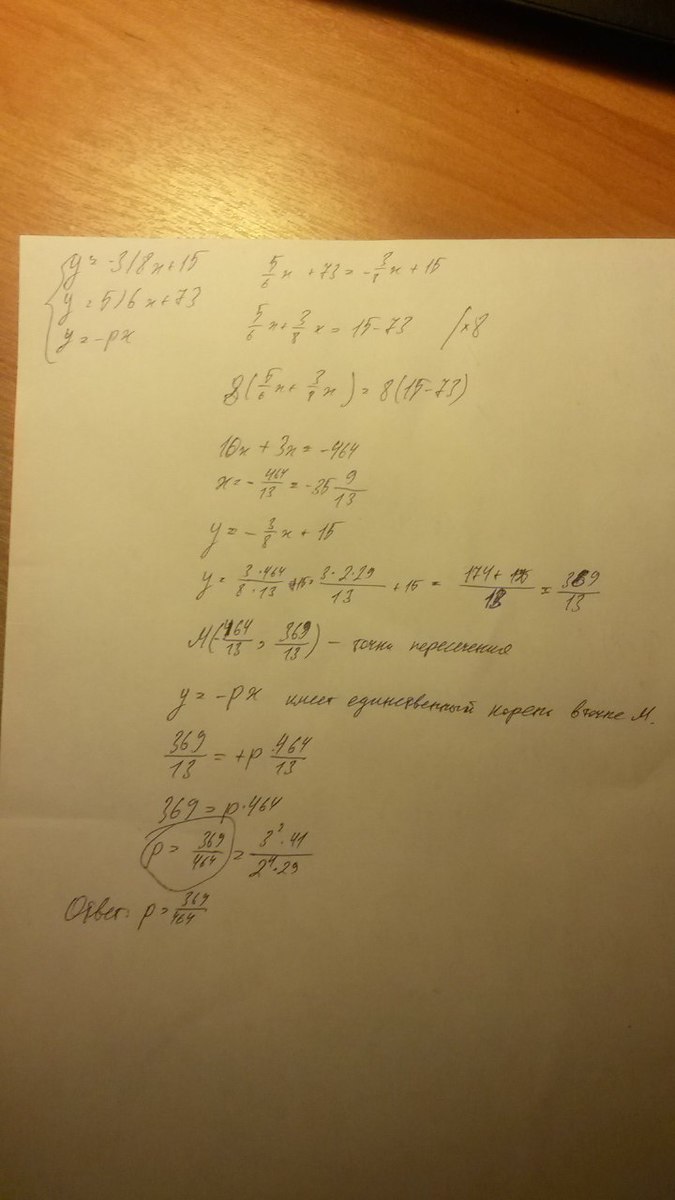 { y = -3/8x+15
y = 5/6x+73
y = -px
5/6 x + 73 = -3/8 x + 15
5/6 x + 3/8 x = 15-73 /×8
8(5/6 x + 3/8 x) = 8(15-73)
10x + 3x = -464
x = -464/13 = -35 9/13
y = -3/8 x + 15
y = 3·464/8·13 +15= 3·2·29/13 +15 = 174+195/13 = 369/13
M(-464/13 ; 369/13) - точка пересечения
y = -px имеет единственный корень в точке M.
369/13 = +p 464/13
369 = p·464
p = 369/464 = 3²·41/2⁴·29
Ответ: p = 369/464